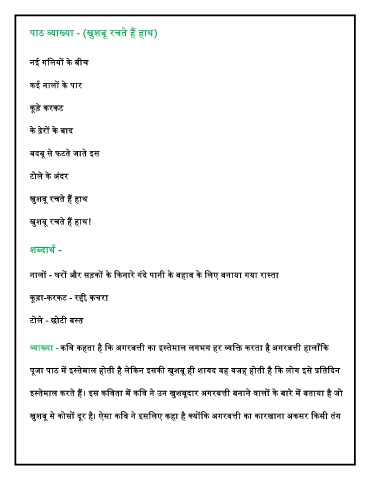 पाठ व्याख्या - (खुशबू रचते हैं हाथ)
नई गलियों के बीच
कई नालों के पार
कूड़े करकट
के ढ़ेरों के बाद
बदबू से फटते जाते इस
टोले के अंदर
खुशबू रचते हैं हाथ
खुशबू रचते हैं हाथ!
शब्दार्थ -
नालों - घरों और सड़कों के किनारे गंदे पानी के बहाव के लिए बनाया गया रास्ता
कूड़ा-करकट - रद्दी, कचरा
टोले - छोटी बस्त
व्याख्या - कवि कहता है कि अगरबत्ती का इस्तेमाल लगभग हर व्यक्ति करता है अगरबत्ती हालाँकि
पूजा पाठ में इस्तेमाल होती है लेकिन इसकी खुशबू ही शायद वह वजह होती है कि लोग इसे प्रतिदिन
इस्तेमाल करते हैं। इस कविता में कवि ने उन खुशबूदार अगरबत्ती बनाने वालों के बारे में बताया है जो
खुशबू से कोसों दूर है। ऐसा कवि ने इसलिए कहा है क्योंकि अगरबत्ती का कारखाना अकसर किसी तंग